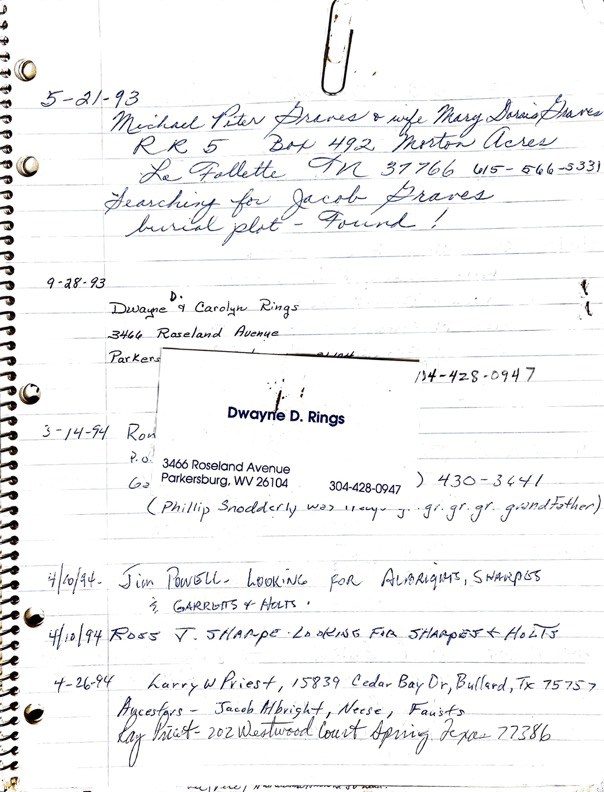 5-21-93
Michael Peter Graves & wife Mary Dorais Graves
RR 5 Box 492 Morton Acres
La Follette TN 37766 615-566-5331
Searching for Jacob Graves
burial plot - Found!
9-28-93
Dwayne D. & Carolyn Rings
3466 Roseland Avenue
Parkers
04-428-0947
Dwayne D. Rings
3466 Roseland Avenue
Parkersburg, WV 26104 304-428-0947
3-14-94 Ron
P.O.
Ga ) 430-3641
(Phillip Snodderly was gr. gr. gr. grandfather)
4/10/94- Jim Powell- Looking for Albrights, Sharpes
& Garretts & Holts.
4/10/94 Ross T. Sharpe- Looking for Sharpes & Holts
4-26-94 Larry W Priest, 15839 Cedar Bay Dr, Bullard, Tx 75757
Ancestors - Jacob Albright, Neese, Fausts
Ray Priest- 202 Westwood Court Spring, Texas 77386